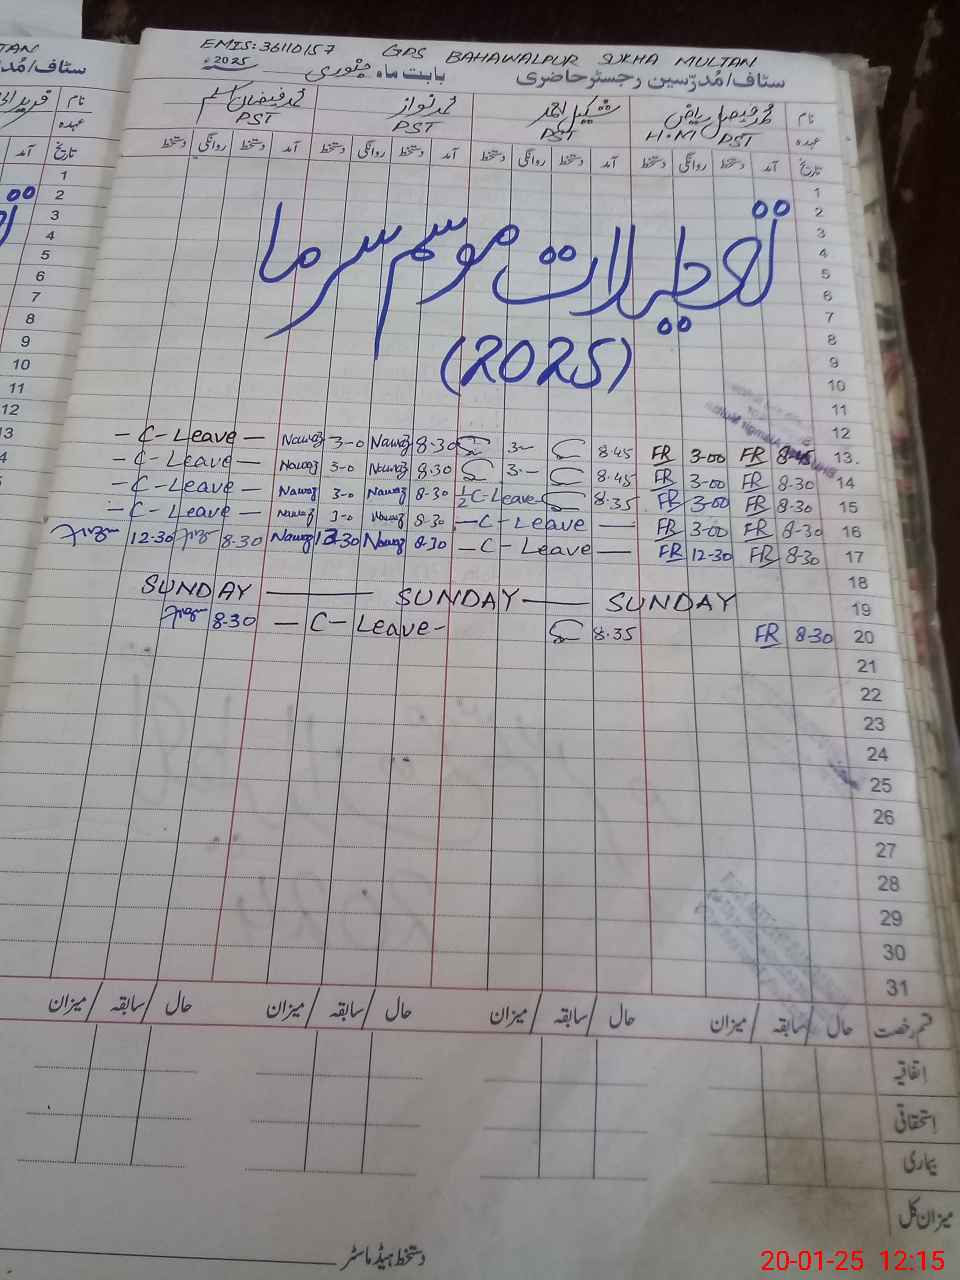 EMIS: 36110157 GPS BAHAWALPUR SUKHA MULTAN
سٹاف/مُدرّسین رجسٹر حاضری بابت ماہ جنوری 2025
نام محمد فیصل ریاض شکیل احمد محمد نواز محمد فیضان اسلم
عہدہ PST H.M PST PST PST
تاریخ آمد دستخط روانگی دستخط آمد دستخط روانگی دستخط آمد دستخط روانگی دستخط آمد دستخط روانگی دستخط
1
2
3
4
5
6
7
8
9
10
11
12
تعطیلات موسم سرما
(2025)
— C-Leave — Nawaz 3-0 Nawaz 8-30 3-- 8.45 FR 3-00 FR 8-45 13.
— C-Leave — Nawaz 3-0 Nawaz 8.30 3-- 8.45 FR 3-00 FR 8-30 14
— C-Leave — Nawaz 3-0 Nawaz 8-30 1/2 C-Leave 8.35 FR 3-00 FR 8-30 15
— C-Leave — Nawaz 3-0 Nawaz 8-30 — C-Leave — FR 3-00 FR 8-30 16
12-30 8-30 Nawaz 12-30 Nawaz 8-30 — C-Leave — FR 12-30 FR 8-30 17
18
SUNDAY —— SUNDAY —— SUNDAY 19
8-30 — C-Leave- 8.35 FR 8-30 20
21
22
23
24
25
26
27
28
29
30
31
قسم رخصت حال سابقہ میزان حال سابقہ میزان حال سابقہ میزان حال سابقہ میزان
اتفاقیہ
استحقاقی
بیماری
میزان کل
دستخط ہیڈ ماسٹر
20-01-25 12:15